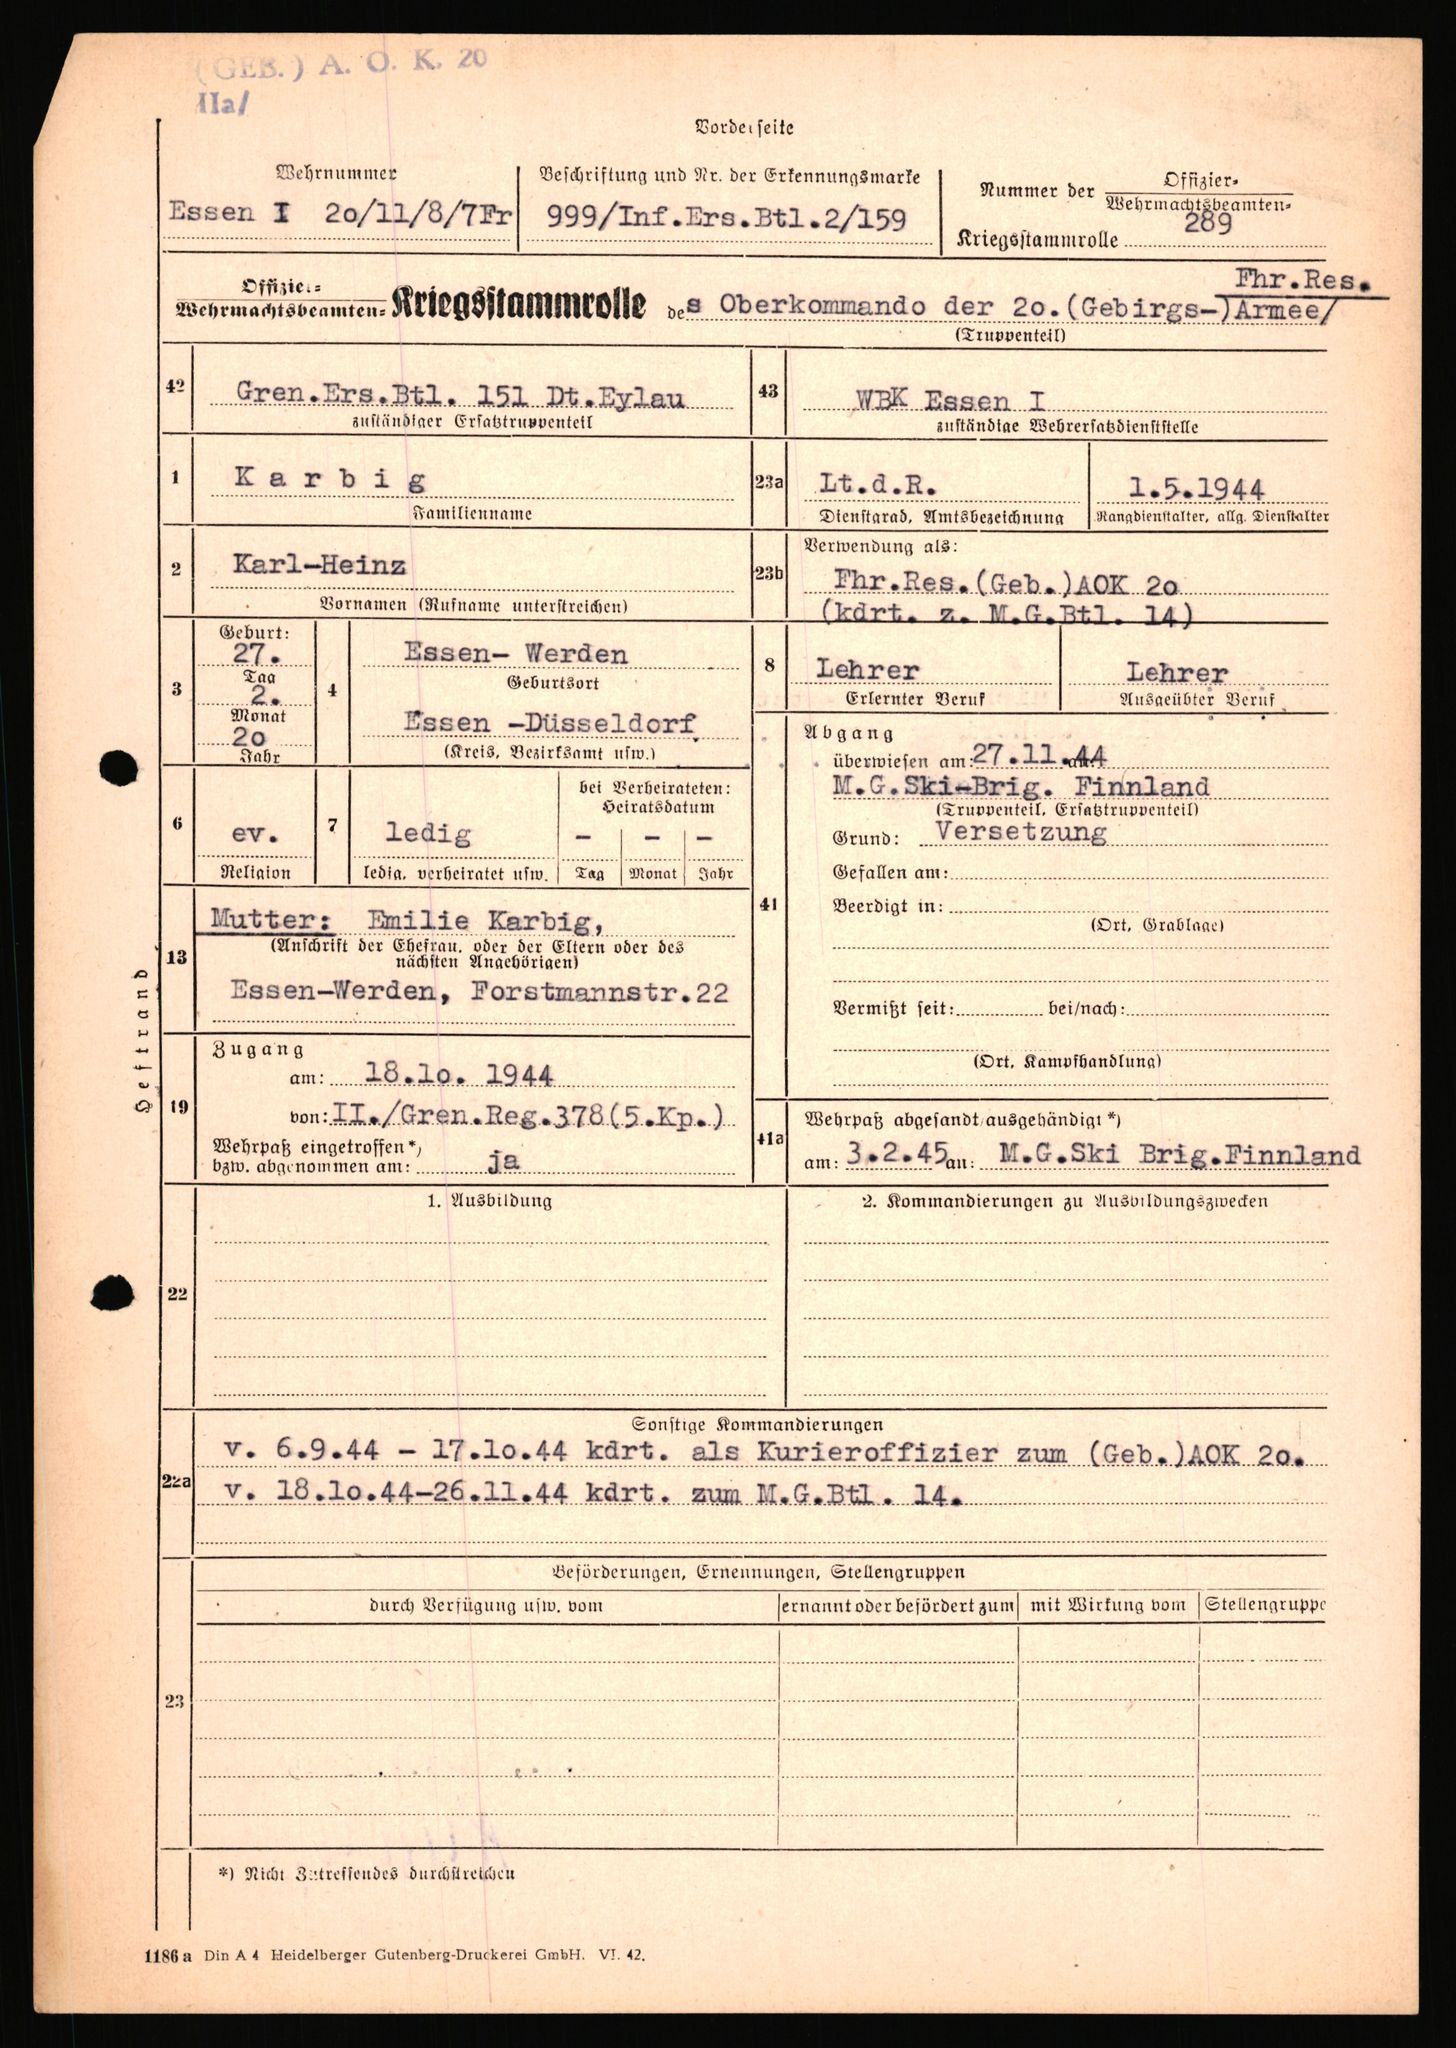 (GEB.) A. O. K. 20
IIa/
Vorderseite
Wehrnummer
Essen I 2o/11/8/7Fr
Beschriftung und Nr. der Erkennungsmarke
999/Inf.Ers.Btl.2/159
Nummer der Offizier-
Wehrmachtsbeamten-
Kriegsstammrolle 289
Offizier-
Wehrmachtsbeamten- Kriegsstammrolle des Oberkommando der 2o.(Gebirgs-)Armee/
Fhr.Res.
(Truppenteil)
42
Gren.Ers.Btl. 151 Dt.Eylau
zuständiger Ersatztruppenteil
43
WBK Essen I
zuständige Wehrersatzdienststelle
1
K a r b i g
Familienname
23a
Lt.d.R.
Dienstgrad, Amtsbezeichnung
1.5.1944
Rangdienstalter, allg. Dienstalter
2
Karl-Heinz
Vornamen (Rufname unterstreichen)
23b
Verwendung als:
Fhr.Res.(Geb.)AOK 2o
(kdrt. z. M.G.Btl. 14)
3
Geburt:
27.
Tag
2.
Monat
2o
Jahr
4
Essen- Werden
Geburtsort
Essen -Düsseldorf
(Kreis, Bezirksamt usw.)
8
Lehrer
Erlernter Beruf
Lehrer
Ausgeübter Beruf
6
ev.
Religion
7
ledig
ledig, verheiratet usw.
bei Verheirateten:
Heiratsdatum
- - -
Tag Monat Jahr
41
Abgang
überwiesen am: 27.11.44 an:
M.G.Ski-Brig. Finnland
(Truppenteil, Ersatztruppenteil)
Grund: Versetzung
Gefallen am:
Beerdigt in:
(Ort, Grablage)
Vermißt seit: bei/nach:
(Ort, Kampfhandlung)
13
Mutter: Emilie Karbig,
(Anschrift der Ehefrau, oder der Eltern oder des
nächsten Angehörigen)
Essen-Werden, Forstmannstr.22
Heftrand
19
Zugang
am: 18.1o. 1944
von: II./Gren.Reg.378(5.Kp.)
Wehrpaß eingetroffen*)
bzw. abgenommen am: ja
41a
Wehrpaß abgesandt/ausgehändigt*)
am: 3.2.45 an: M.G.Ski Brig.Finnland
22
1. Ausbildung
2. Kommandierungen zu Ausbildungszwecken
22a
Sonstige Kommandierungen
v. 6.9.44 - 17.1o.44 kdrt. als Kurieroffizier zum (Geb.)AOK 2o.
v. 18.1o.44-26.11.44 kdrt. zum M.G.Btl. 14.
23
Beförderungen, Ernennungen, Stellengruppen
durch Verfügung usw. vom
ernannt oder befördert zum
mit Wirkung vom
Stellengruppe
*) Nicht Zutreffendes durchstreichen
1186 a Din A 4 Heidelberger Gutenberg-Druckerei GmbH. VI. 42.